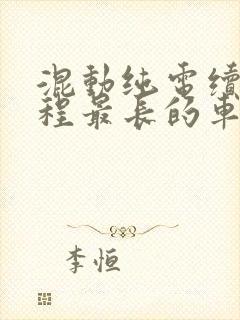 混動纯電續
程最长的車
李恒